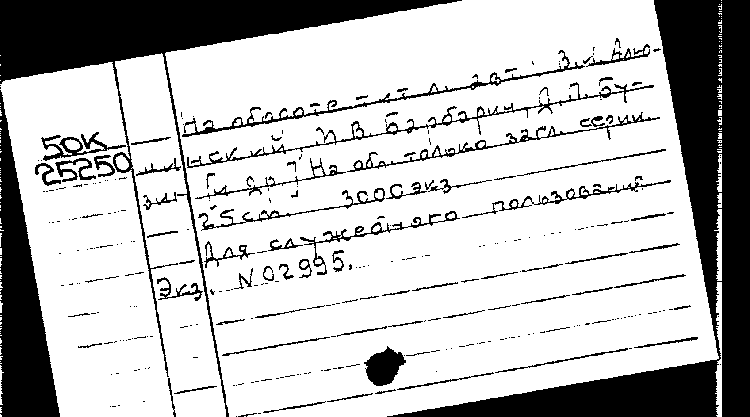 50К
25250
На обороте тит. л. авт.: В. И. Алю-
инский, М. В. Барбарин, Д. П. Бу-
зин [и др.] На об. только загл. серии.
25 cm. 3000 экз
Для служебного пользования
Экз. N 02995.